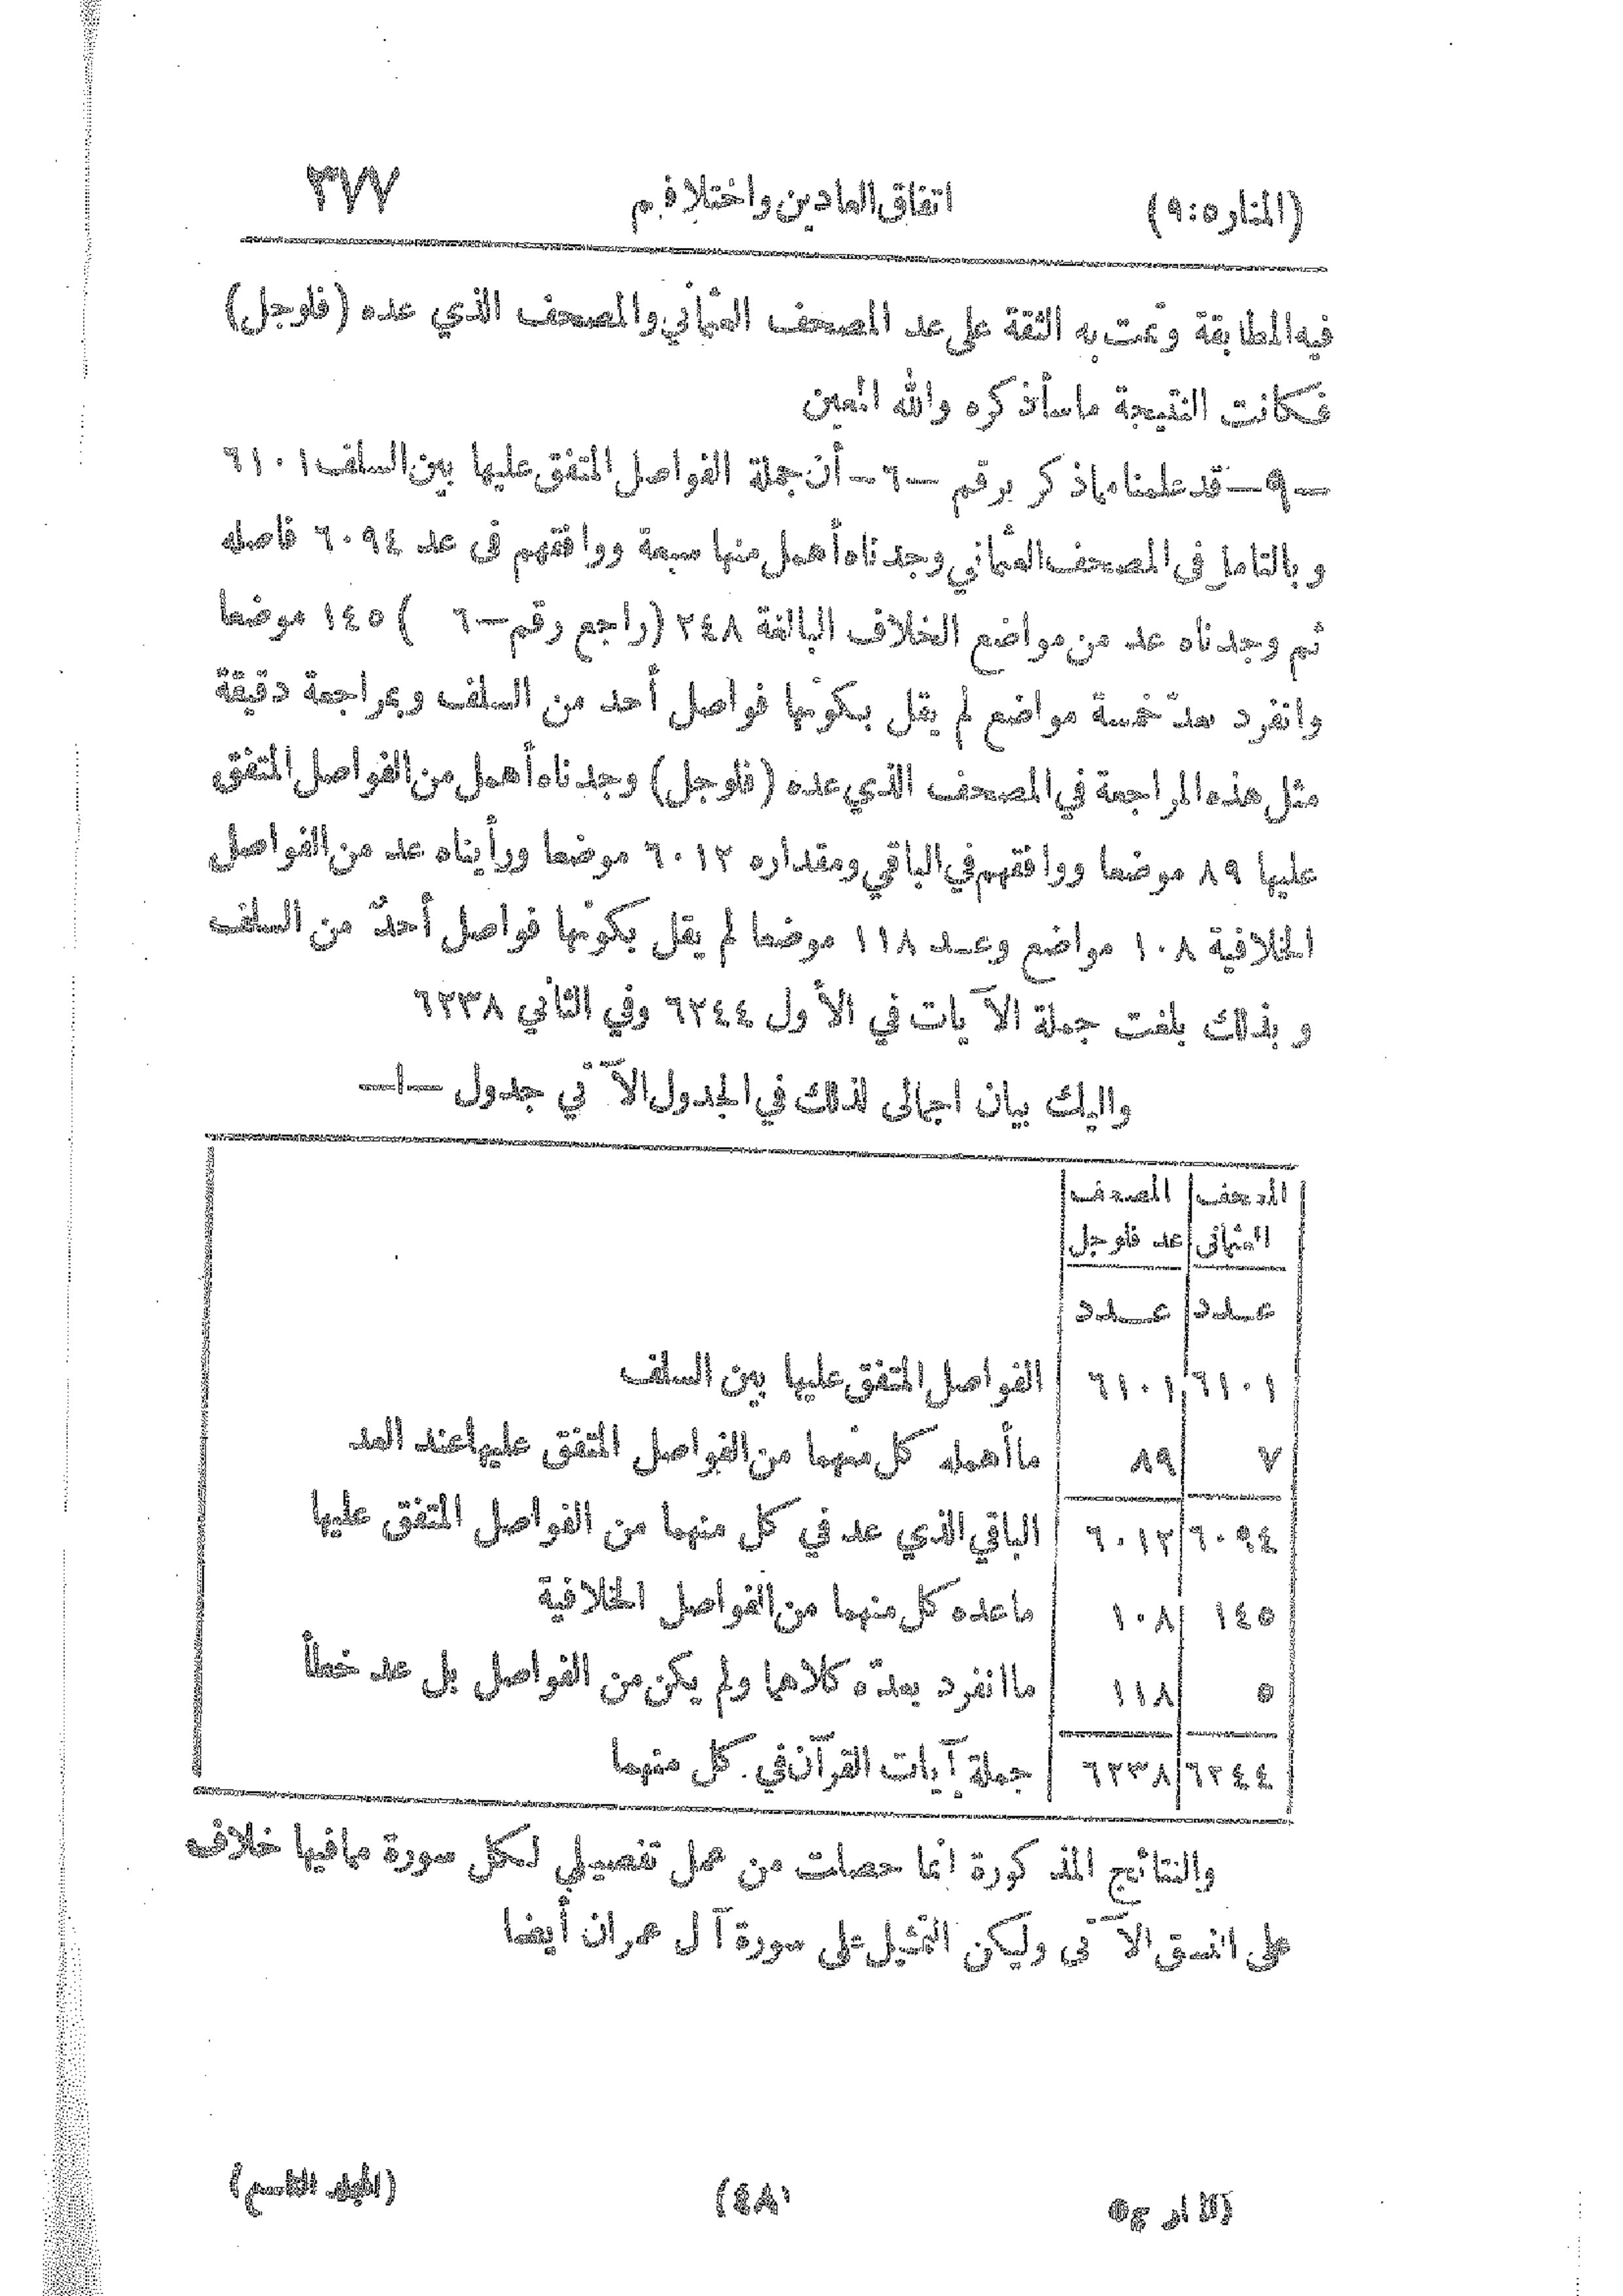 (المنار ٥:٩) اتفاق العادين واختلافهم ٣٧٧
فيه المطابقة وتمت به الثقة على عد المصحف العثماني والمصحف الذي عده (فلوجل)
فكانت النتيجة ماسأذكره والله المعين
—٩—قد علمنا مما ذكر برقم —٦— أن جملة الفواصل المتفق عليها بين السلف ٦١٠١
وبالتامل في المصحف العثماني وجدناه أهمل منها سبعة ووافقهم في عد ٦٠٩٤ فاصله
ثم وجدناه عد من مواضع الخلاف البالغة ٢٤٨ (راجع رقم —٦ ) ١٤٥ موضعا
وانفرد بعدّ خمسة مواضع لم يقل بكونها فواصل أحد من السلف وبمراجعة دقيقة
مثل هذه المراجعة في المصحف الذي عده (فلوجل) وجدناه أهمل من الفواصل المتفق
عليها ٨٩ موضعا ووافقهم في الباقي ومقداره ٦٠١٢ موضعا ورأيناه عد من الفواصل
الخلافية ١٠٨ مواضع وعد ١١٨ موضعا لم يقل بكونها فواصل أحدٌ من السلف
وبذلك بلغت جملة الآيات في الأول ٦٢٤٤ وفي الثاني ٦٢٣٨
واليك بيان اجمالى لذلك في الجدول الآتي جدول —١—
المصحف المصحف
العثمانى عد فلوجل
عدد عدد
٦١٠١ ٦١٠١ الفواصل المتفق عليها بين السلف
٧ ٨٩ ما أهمله كل منهما من الفواصل المتفق عليها عند العد
٦٠٩٤ ٦٠١٢ الباقي الذي عد في كل منهما من الفواصل المتفق عليها
١٤٥ ١٠٨ ماعده كل منهما من الفواصل الخلافية
٥ ١١٨ ما انفرد بعدّه كلاهما ولم يكن من الفواصل بل عد خطأ
٦٢٤٤ ٦٢٣٨ جملة آيات القرآن في كل منهما
والنتائج المذكورة انما حصلت من عمل تفصيلي لكل سورة مما فيها خلاف
على النسق الآتى وليكن التمثيل على سورة آل عمران أيضا
(المنار ج٥ (٤٨) (المجلد التاسع)